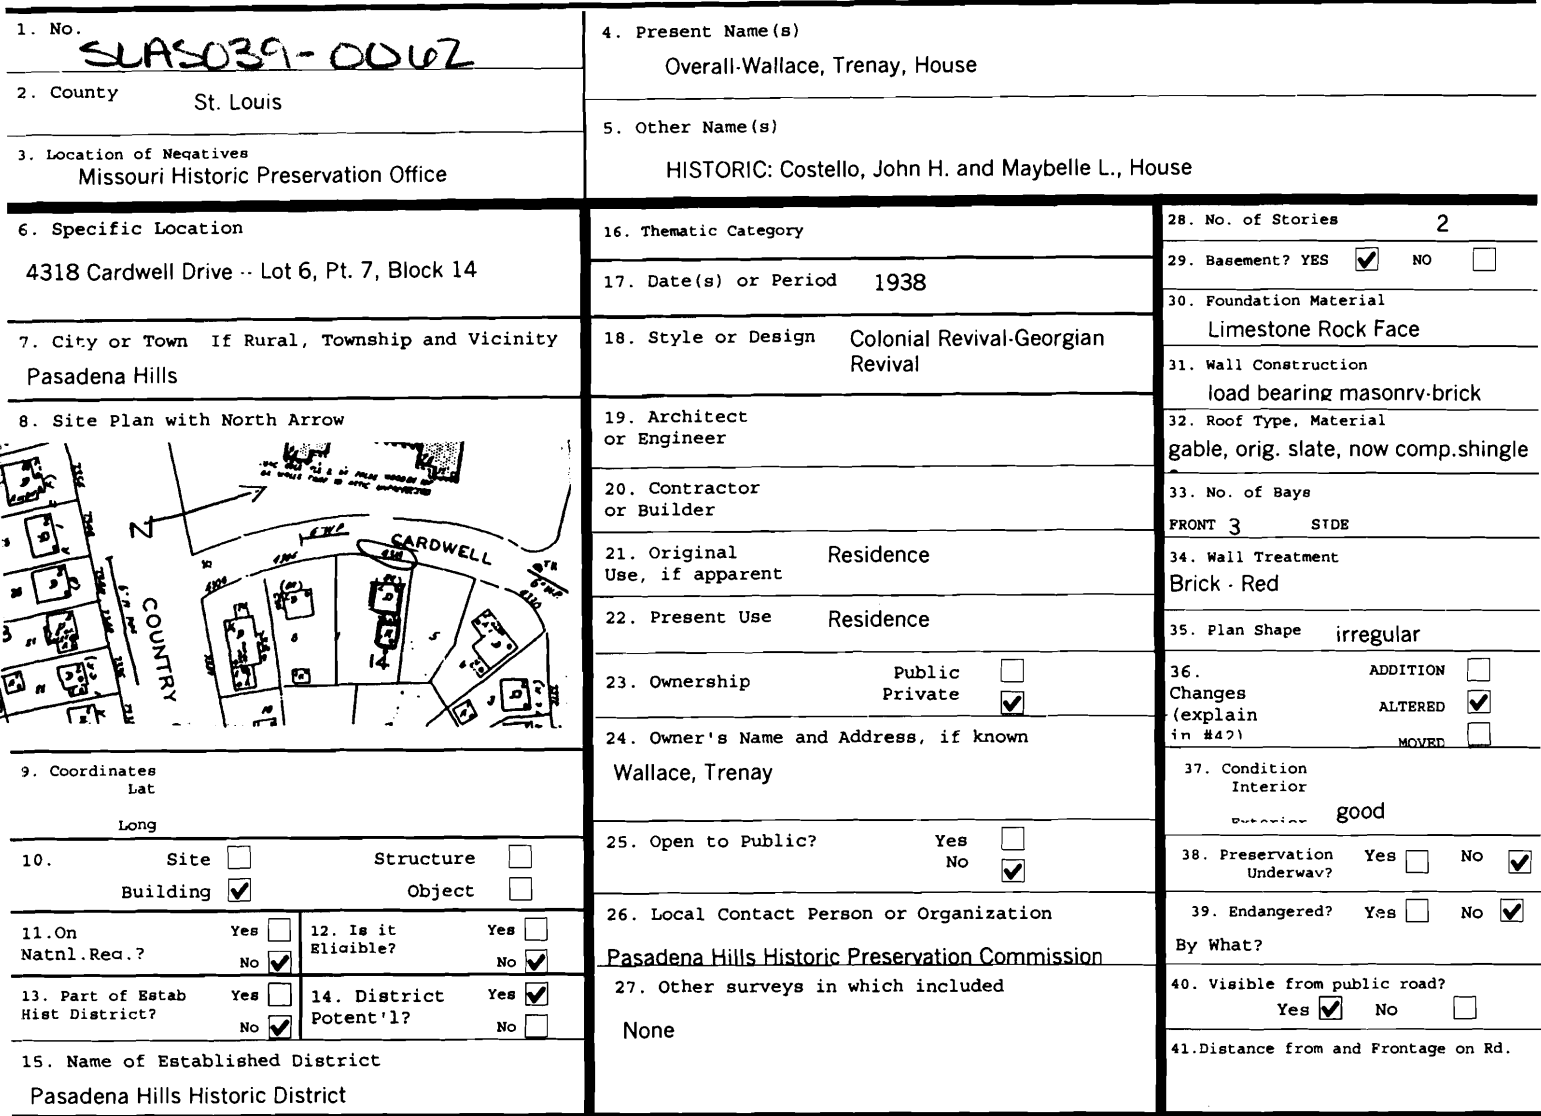 1. No.
SLAS039-0062
2. County
St. Louis
3. Location of Negatives
Missouri Historic Preservation Office
4. Present Name(s)
Overall-Wallace, Trenay, House
5. Other Name(s)
HISTORIC: Costello, John H. and Maybelle L., House
6. Specific Location
4318 Cardwell Drive -- Lot 6, Pt. 7, Block 14
7. City or Town If Rural, Township and Vicinity
Pasadena Hills
8. Site Plan with North Arrow
N
CARDWELL
COUNTRY
14
9. Coordinates
Lat
Long
10. Site Structure
Building Object
11.On
Natnl.Reg.?
Yes
No
12. Is it
Eligible?
Yes
No
13. Part of Estab
Hist District?
Yes
No
14. District
Potent'l?
Yes
No
15. Name of Established District
Pasadena Hills Historic District
16. Thematic Category
17. Date(s) or Period 1938
18. Style or Design Colonial Revival-Georgian
Revival
19. Architect
or Engineer
20. Contractor
or Builder
21. Original
Use, if apparent
Residence
22. Present Use Residence
23. Ownership Public
Private
24. Owner's Name and Address, if known
Wallace, Trenay
25. Open to Public? Yes
No
26. Local Contact Person or Organization
Pasadena Hills Historic Preservation Commission
27. Other surveys in which included
None
28. No. of Stories 2
29. Basement? YES NO
30. Foundation Material
Limestone Rock Face
31. Wall Construction
load bearing masonry-brick
32. Roof Type, Material
gable, orig. slate, now comp.shingle
33. No. of Bays
FRONT 3 SIDE
34. Wall Treatment
Brick - Red
35. Plan Shape irregular
36.
Changes
(explain
in #42)
ADDITION
ALTERED
MOVED
37. Condition
Interior
Exterior good
38. Preservation
Underway?
Yes No
39. Endangered? Yes No
By What?
40. Visible from public road?
Yes No
41.Distance from and Frontage on Rd.